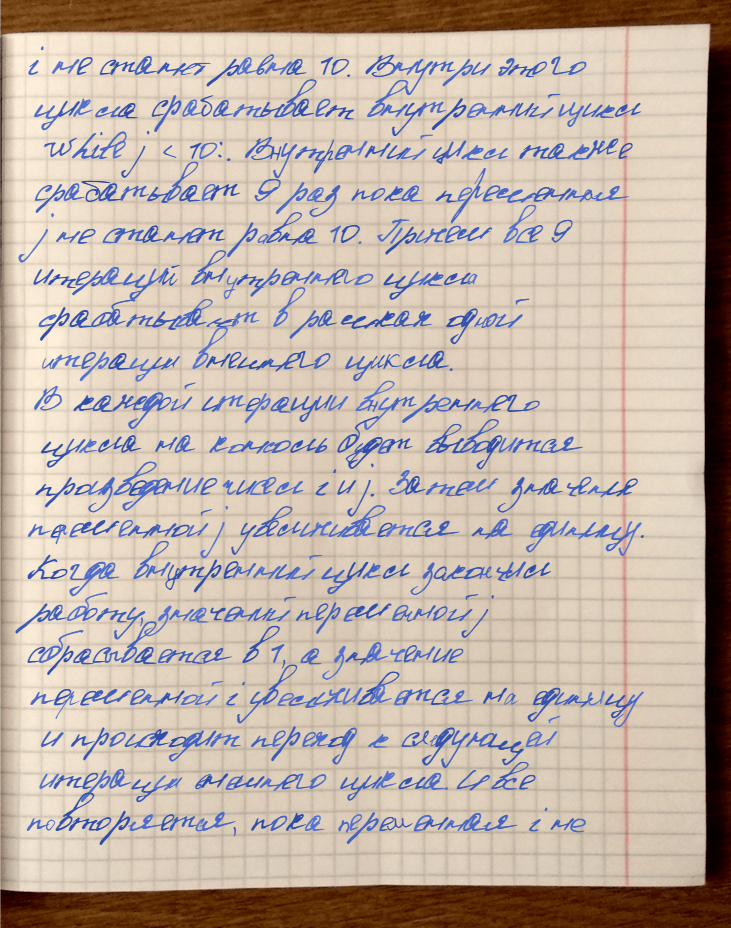 i не станет равна 10. Внутри этого
цикла срабатывает внутренний цикл
while j < 10:. Внутренний цикл также
срабатывает 9 раз пока переменная
j не станет равна 10. Причем все 9
итераций внутреннего цикла
срабатывают в рамках одной
итерации внешнего цикла.
В каждой итерации внутреннего
цикла на консоль будет выводится
произведение чисел i и j. Затем значение
переменной j увеличивается на единицу.
Когда внутренний цикл закончил
работу, значений переменной j
сбрасывается в 1, а значение
переменной i увеличивается на единицу
и происходит переход к следующей
итерации внешнего цикла. И все
повторяется, пока переменная i не